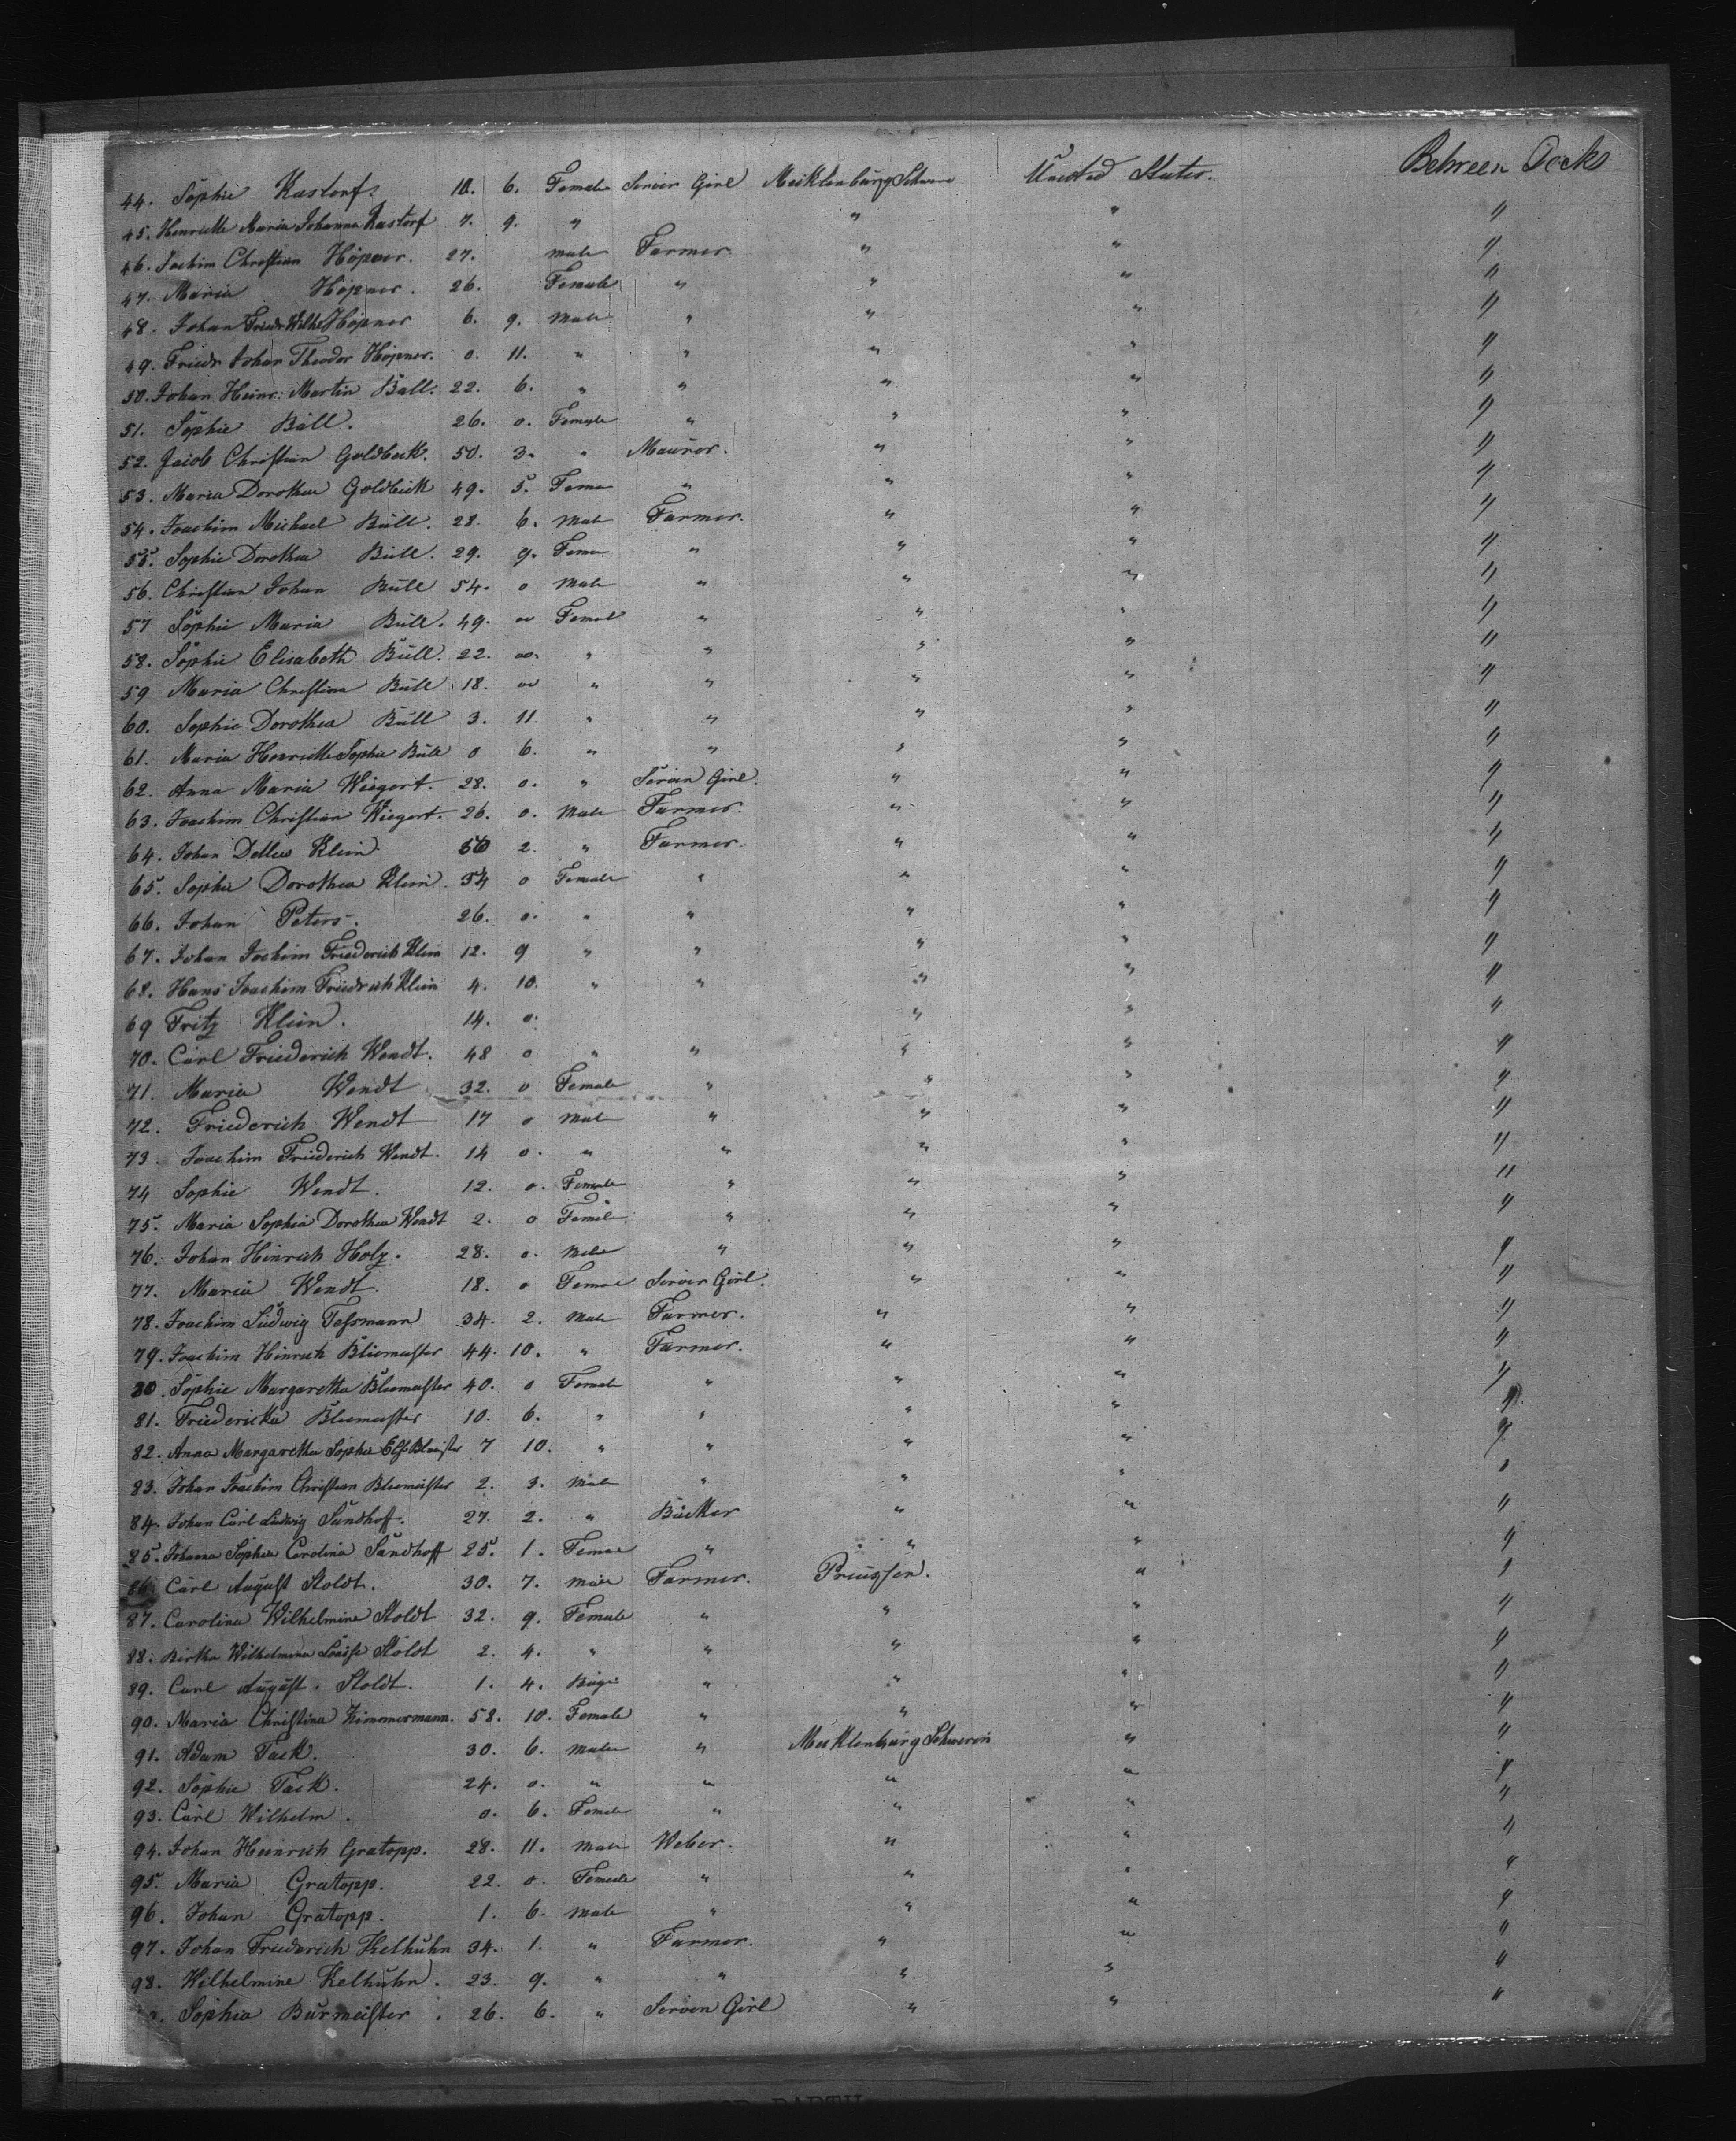 44. Sophie Kastorf. 10. 6. Female Servin Girl Mecklenburg Schwerin United States. Between Decks
45. Henriette Maria Johanna Kastorf 7. 9. " " " "
46. Jochim Christian Höpner. 27. male Farmer " " "
47. Maria Höpner. 26. Female " " " "
48. Johan Friedr Wilh Höpner 6. 9. Male " " " "
49. Friedr Johan Theodor Höpner. 0. 11. " " " " "
50. Johan Heinr: Martin Bull. 22. 6. " " " " "
51. Sophie Büll. 26. 0. Female " " " "
52. Jacob Christian Goldbeck. 50. 3. " Maurer. " " "
53. Maria Dorothea Goldbeck 49. 5. Fema " " " "
54. Joachim Michael Büll. 28. 6. Male Farmer. " " "
55. Sophie Dorothea Büll. 29. 9. Fema " " " "
56. Christian Johan Büll 54. 0 Male " " " "
57 Sophie Maria Büll. 49. 00 Femal " " " "
58. Sophie Elisabeth Büll. 22. 00. " " " " "
59 Maria Christina Büll 18. 00 " " " " "
60. Sophie Dorothea Büll 3. 11. " " " " "
61. Maria Henriette Sophie Büll 0 6. " " " " "
62. Anna Maria Wiegert. 28. 0. " Servin Girl. " " "
63. Joachim Christian Wiegert. 26. 0. Male Farmer. " " "
64. Johan Klein 50 2. " Farmer. " " "
65. Sophie Dorothea Klein. 54 0 Female " " " "
66. Johan Peters. 26. 0. " " " " "
67. Johan Jochim Friederich Klein 12. 9 " " " " "
68. Hans Joachim Friedrich Klein 4. 10. " " " " "
69 Fritz Klein. 14. 0. " " "
70. Carl Friederich Wendt. 48 0 " " " " "
71. Maria Wendt 32. 0 Female " " " "
72. Friederich Wendt 17 0 Male " " " "
73. Joachim Friederich Wendt. 14 0. " " " " "
74 Sophie Wendt. 12. 0. Female " " " "
75. Maria Sophia Dorothea Wendt 2. 0 Femal " " " "
76. Johan Hinrich Holz. 28. 0. Male " " " "
77. Maria Wendt. 18. 0 Femae Servin Girl. " " "
78. Joachim Ludwig Tessmann 34. 2. Male Farmer. " " "
79. Joachim Hinrich Bliemeister 44. 10. " Farmer. " " "
80. Sophie Margaretha Bliemeister 40. 0 Female " " " "
81. Friedericka Bliemeister 10. 6. " " " " "
82. Anna Margaretha Sophie 7 10. " " " " "
83. Johan Joachim Christian Bliemeister 2. 3. Male " " " "
84. Johan Carl Ludwig Sundhoff. 27. 2. " Bäcker " " "
85. Johanna Sophia Carolina Sundhoff 25. 1. Femae " " " "
86 Carl August Stoldt. 30. 7. Male Farmer. Preussen. " "
87. Carolina Wilhelmine Stoldt 32. 9. Female " " " "
88. Bertha Wilhelmina Louise Stoldt 2. 4. " " " " "
89. Carl August. Stoldt. 1. 4. " " " "
90. Maria Christina Zimmermann. 58. 10. Female " " " "
91. Adam Tack. 30. 6. Male " Mecklenburg Schwerin " "
92. Sophie Tack. 24. 0. " " " " "
93. Carl Wilhelm. 0. 6. Female " " " "
94. Johan Heinrich Gratopp. 28. 11. Male Weber. " " "
95. Maria Gratopp. 22. 0. Female " " " "
96. Johan Gratopp. 1. 6. Male " " " "
97. Johan Friederich Kelhuhn 34. 1. " Farmer. " " "
98. Wilhelmine Kelhuhn. 23. 9. " " " " "
Sophia Burmeister. 26. 6. " Serven Girl " " "